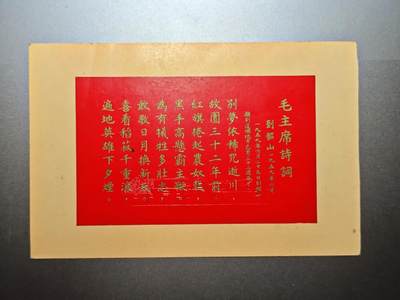 毛主席詩詞
到韶山 一九五九年六月
一九五九年六月二十五日到韶山
別夢依稀咒逝川，
故園三十二年前。
紅旗捲起農奴戟，
黑手高懸霸主鞭。
為有犧牲多壯志，
敢教日月換新天。
喜看稻菽千重浪，
遍地英雄下夕煙。